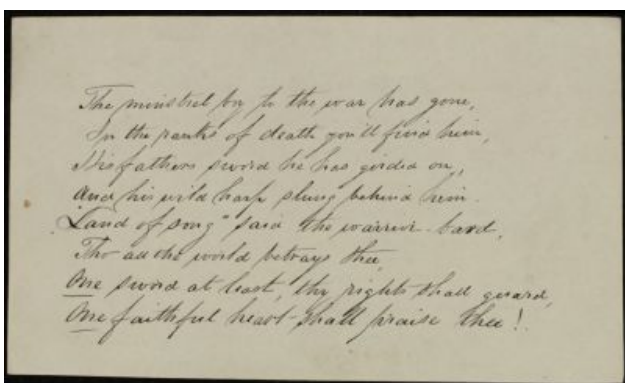 The minstrel boy to the war has gone,
In the ranks of death you'll find him,
His fathers sword he has girded on,
And his wild harp slung behind him.
"Land of song" said the warrior-bard,
Tho all the world betrays thee
One sword at least, thy rights shall guard,
One faithful heart shall praise thee!